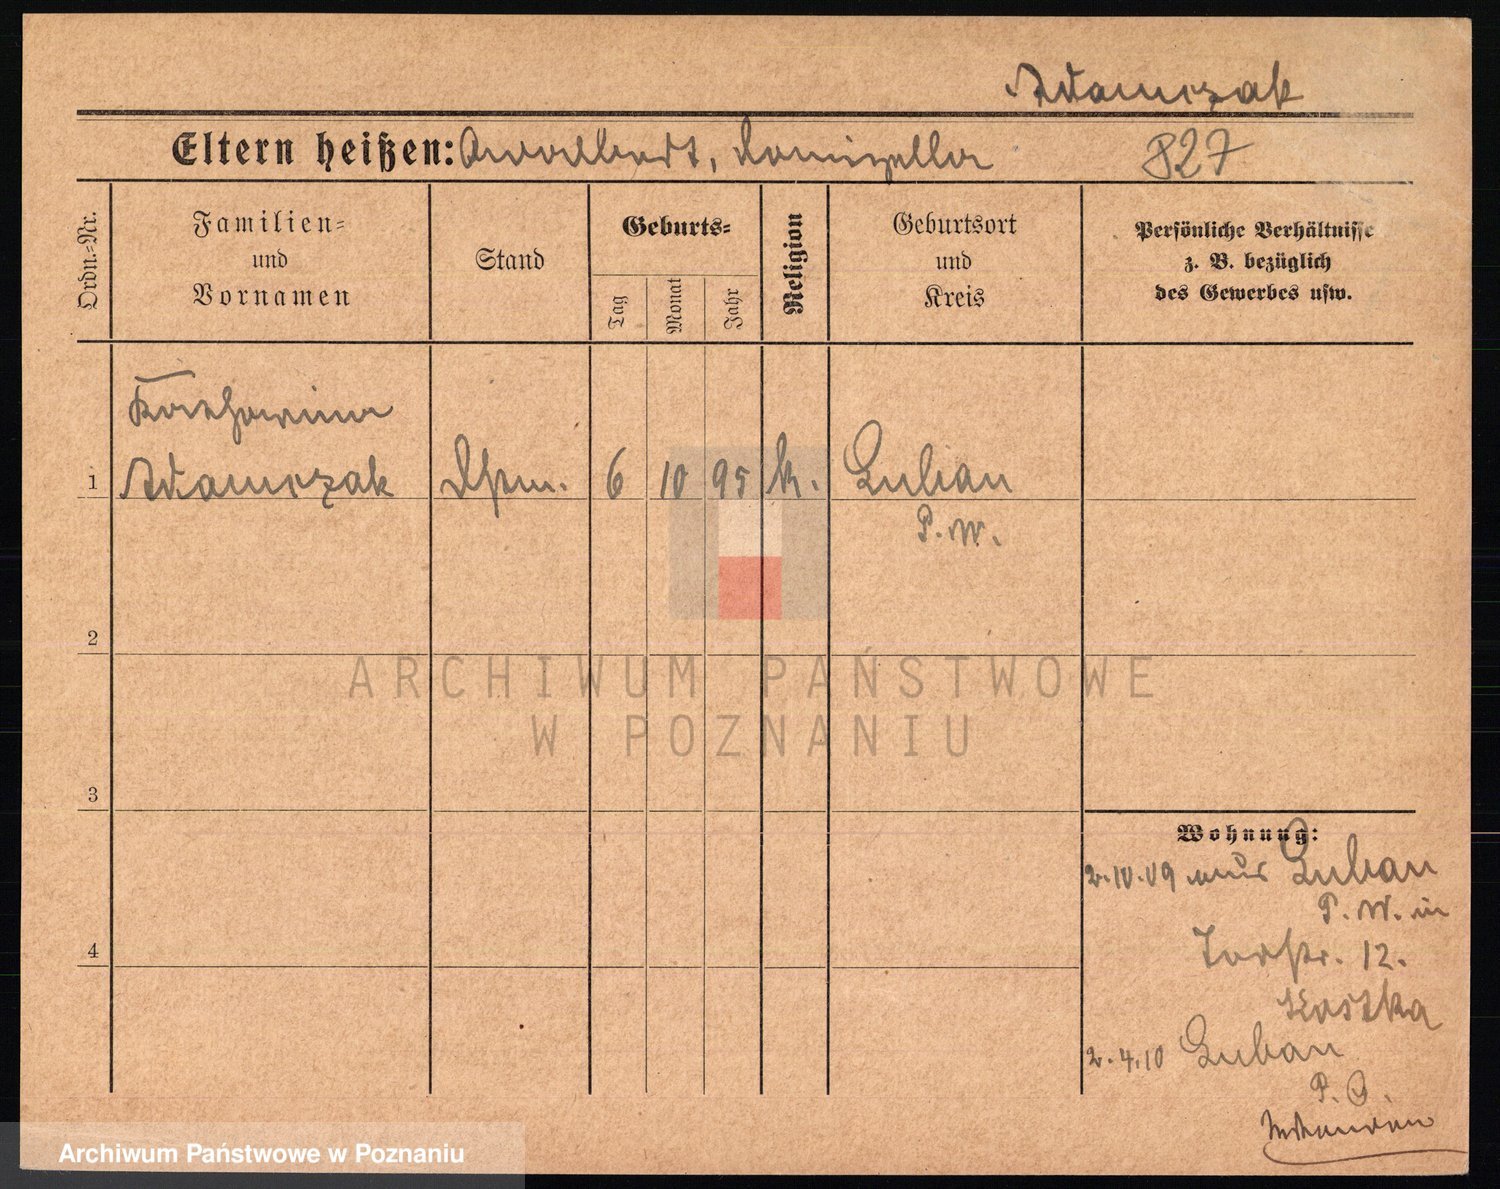 Adamczak
Eltern heißen: Adalbert, Domizella 827
Ordn.-Nr.
Familien-
und
Vornamen
Stand
Geburts-
Tag
Monat
Jahr
Religion
Geburtsort
und
Kreis
Persönliche Verhältnisse
z. B. bezüglich
des Gewerbes usw.
Katharina
1 Adamczak 6 10 95 k. Luban
P. W.
2
3
4
Wohnung:
2.10.09 aus Luban
P. W. in
Torstr. 12.
Kostka
2.4.10 Luban
P. O.
ARCHIWUM PAŃSTWOWE
W POZNANIU
Archiwum Państwowe w Poznaniu